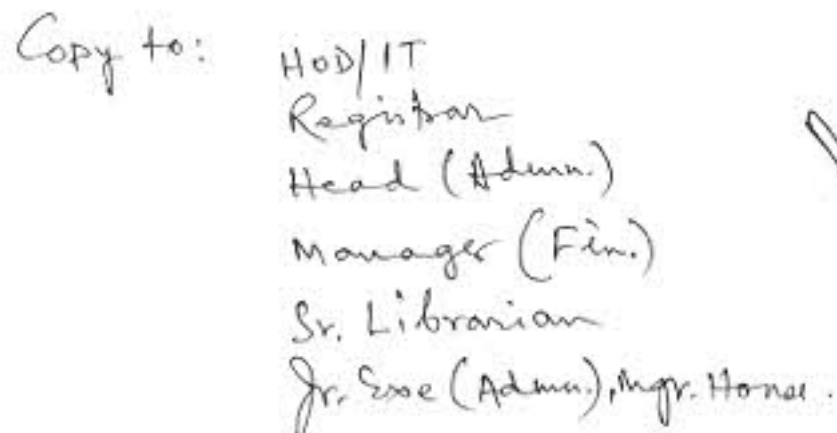 Copy to: HOD/IT
Registrar
Head (Admn.)
Manager (Fin.)
Sr. Librarian
Jr. Exe (Admn.), Mgr.